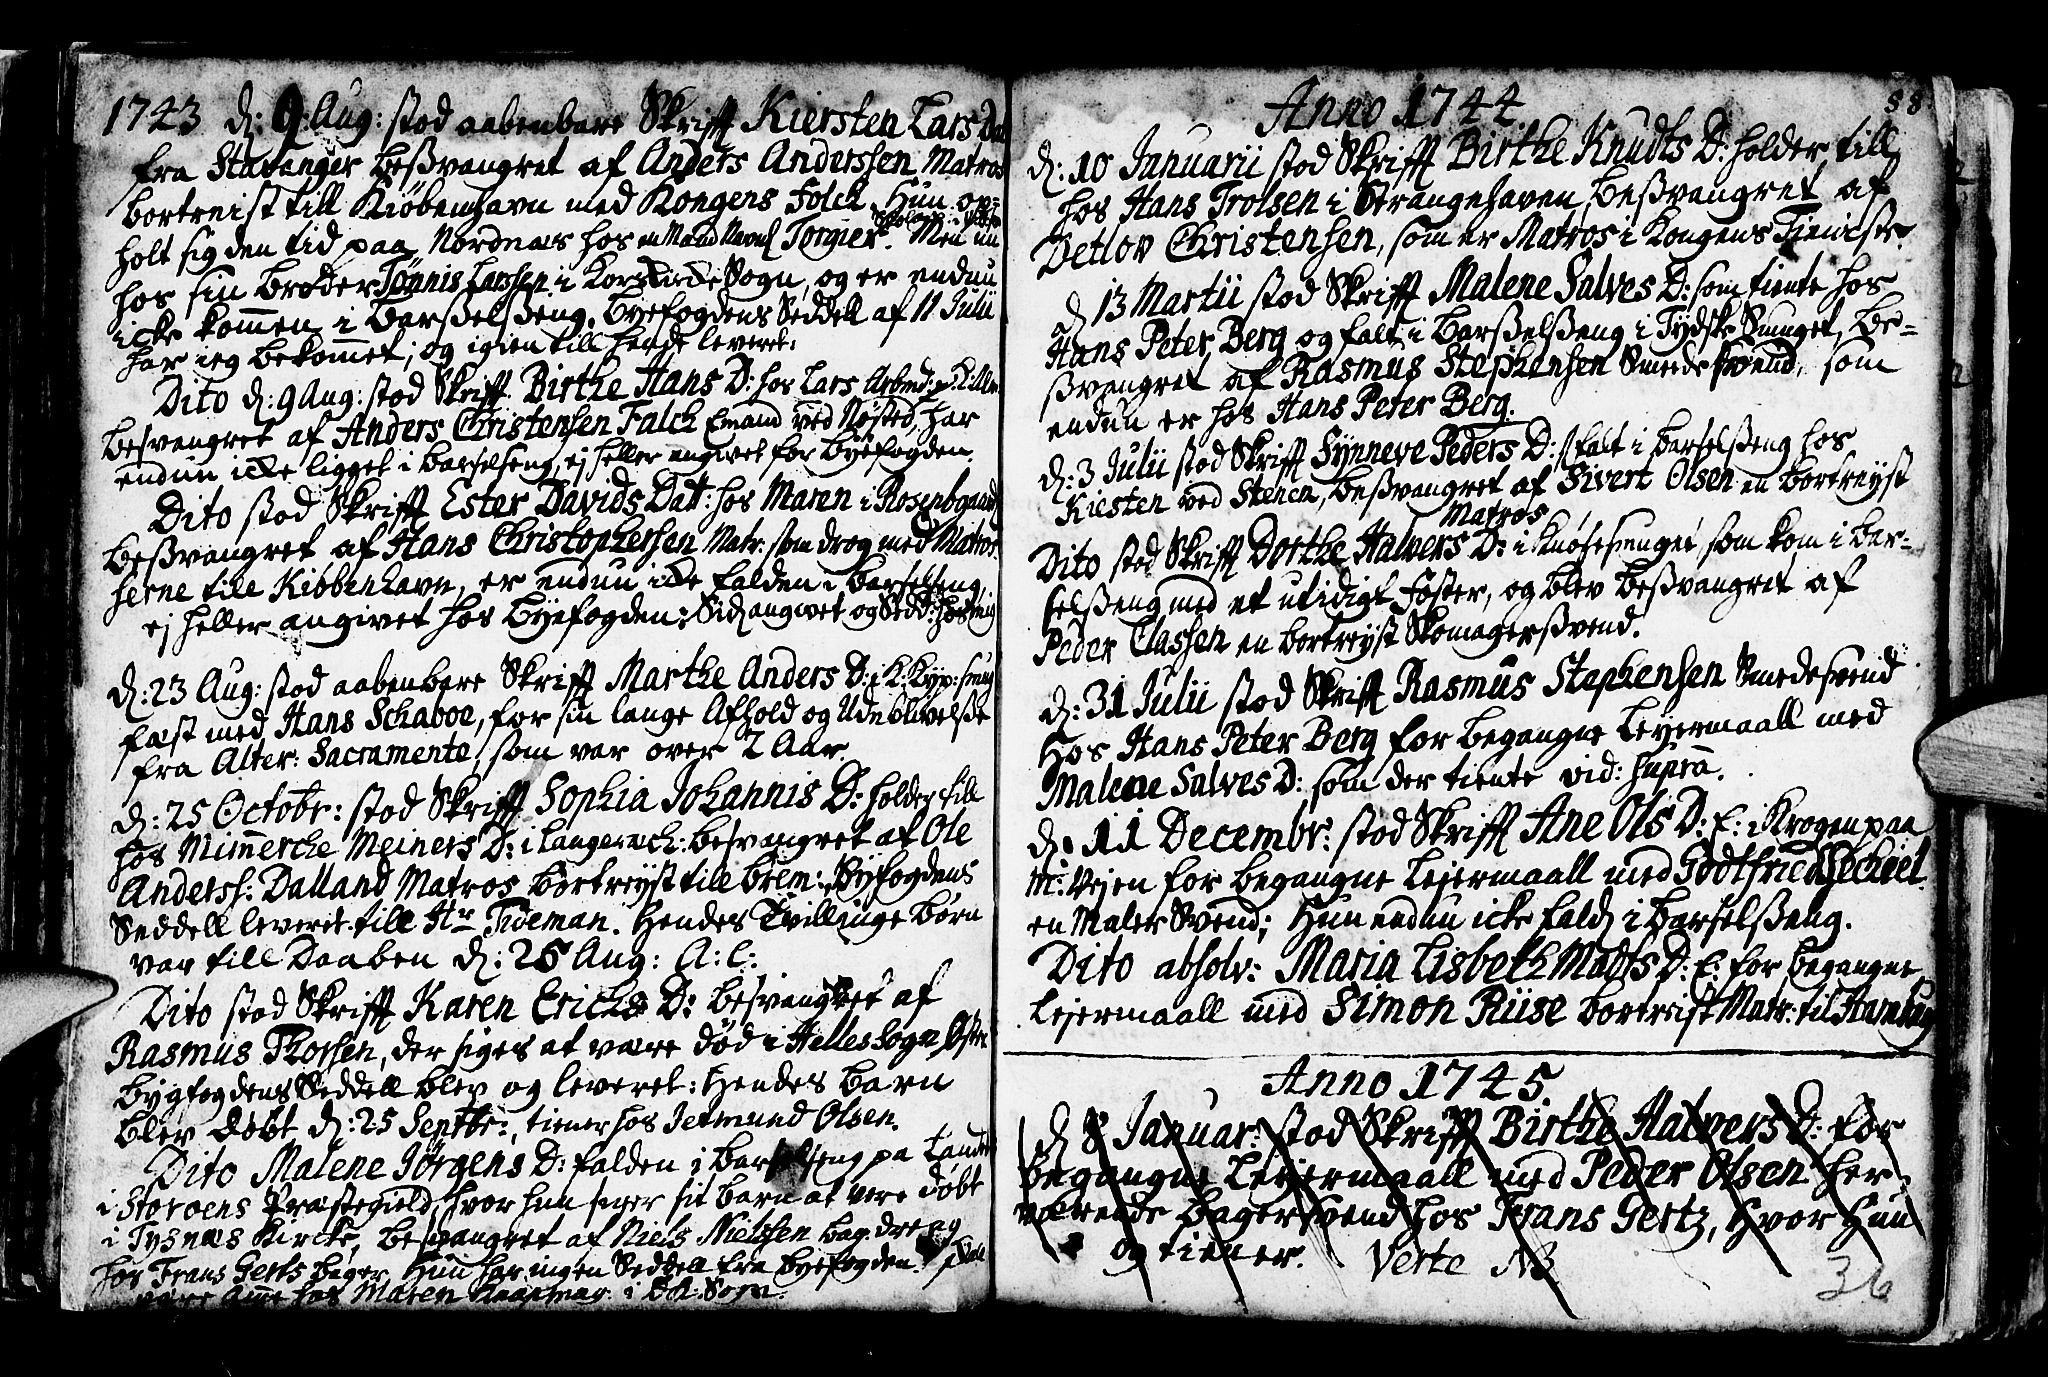 1743 d: 9 Aug: stod aabenbare Skrifft Kiersten Lars Dat
fra Stavanger besvangret af Anders Anderssen Matros
bortreist till Kiøbenhavn med Kongens Folck. Hun op-
holt sig den tid paa Nordnæs hos en Mand Navnl Torgier. Men nu
hos sin broder Tønnis Larssen i Sogn, og er endnu
icke kommen i Barsselseng. Byefogdens Seddell af 11 Julii
har ieg bekommet; og igien till hende leveret.
Dito d: 9 Aug: stod Skrifft Birthe Hans D: hos Lars
besvangret af Anders Christensen Falck Emand ved Nøsted, har
endnu icke ligget i barselseng, ej heller angivet for Byefogden.
Dito stod Skrifft Ester Davids Datt: hos Maren i Rosenbgaard
besvangret af Hans Christophersen Matr: som drog med Matro-
serne till Kiøbenhavn, er endnu icke falden i barselseng,
ej heller angivet hos Byefogden: Siden angivet og Sedd:
d: 23 Aug: stod aabenbare Skrifft Marthe Anders D:
fæst med Hans Schaboe, for sin lange Afhold og Udeblivelse
fra Alter: Sacramente, som var over 2 Aar.
d: 25 Octobr: stod Skrifft Sophia Johannis D: holder till
hos Mimmerche Meiners D: i besvangret af Ole
Anderss: Dalland Matros bortreyst till brem: Byfogdens
Seddell leveret till Hr Tideman. Hendes Tvillinge børn
var till Daaben d: 25 Aug: A: C:
Dito stod Skrifft Karen Erichs D: besvangret af
Rasmus Thorsen, der siges at være død i Helles Sogn
bygfogdens Seddell blev og leveret: Hendes barn
blev døbt d: 25 Septbr:, tiener hos Jetmund Olsen.
Dito Malene Jørgens D: falden i barselseng pa Landet
i Storøens Præstegield, hvor hun siger sit barn at være døbt
i Tysnæs Kircke, besvangret af Niels Nielssen bag. dreng
hos Frans Gerts bager. Hun har ingen Seddell fra Byefogden.
være Amme hos Maren i Sogn.
88
Anno 1744
d: 10 Januarii stod Skrifft Birthe Knudts D: holder till
hos Hans Trolsen i Strangehaven, besvangret af
Detlov Christensen, som er Matros i Kongens Tieniste.
d 13 Martii stod Skrifft Malene Salves D: som tiente hos
Hans Peter Berg og falt i Barsselseng i Tydske Smuget, be-
svangret af Rasmus Stephensen Smedesvend, som
endnu er hos Hans Peter Berg.
d: 3 Julii stod Skrifft Synneve Peders D: falt i barselseng hos
Kiesten ved Stenen, besvangret af Sivert Olsen en bortreyst
Matros
Dito stod Skrifft Dorthe Halvers D: i som kom i bar-
selseng med et utidigt Foster, og blev besvangret af
Peder Classen en bortreyst Skomagersvend.
d: 31 Julii stod Skrifft Rasmus Stephensen Smedesvend
Hos Hans Peter Berg for begangne Leyermaall med
Malene Salves D: som der tiente vid: supra.
d: 11 Decembr: stod Skrifft Ane Ols D: E: i Krogen paa
for begangne Lejermaall med Godtfried
en Maler Svend; Hun endnu icke fald i barselseng.
Dito absolv: Maria Lisbeth Matts D: E: for begangne
Lejermaall med Simon Riise bortreist Matr: til Hamburg
Anno 1745.
d 8 Januar: stod Skrifft Birthe Halvers D: for
begangne Leyermaall med Peder Olsen her-
værende bagersvend hos Frans Gertz, hvor Hun
og tiener. Verte NB
36